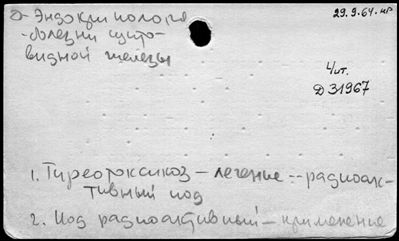 а- Эндокринология
29.9.64. нр
-болезни щито-
видной железы
4/ит.
Д 31967
1. Тиреотоксикоз - лечение -- радиоак-
тивный иод
2. Иод радиоактивный - применение